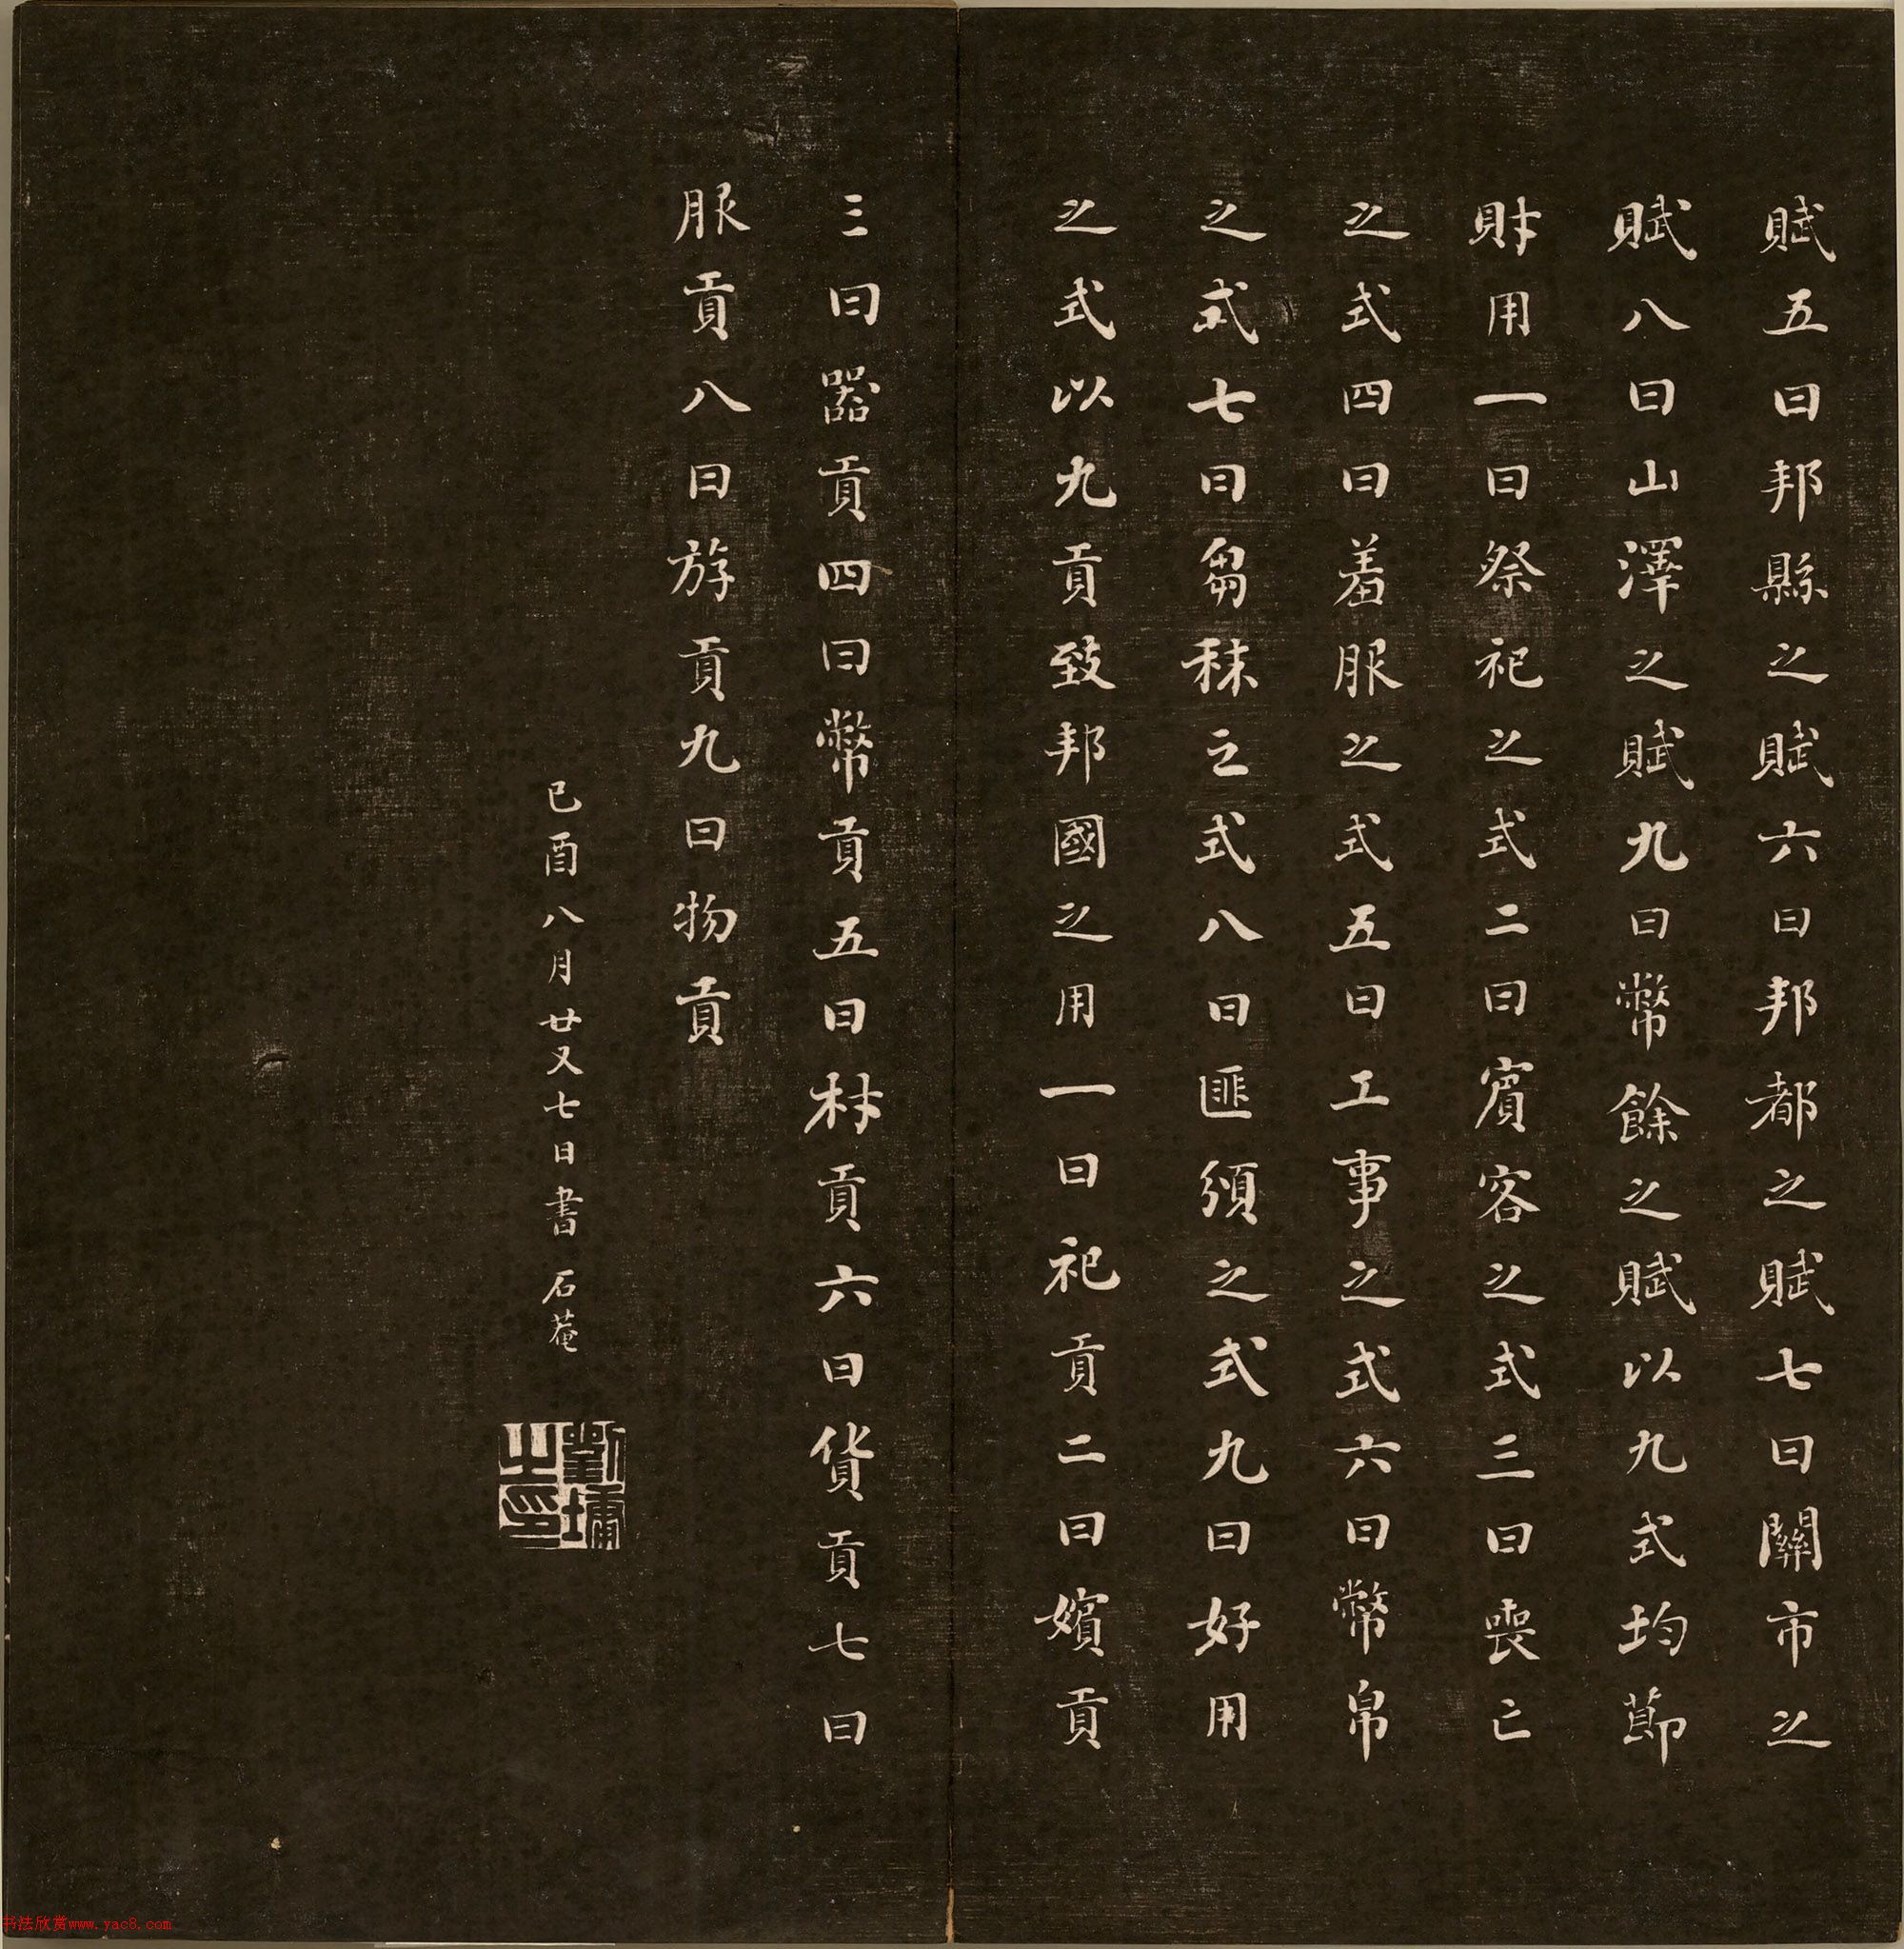 賦五曰邦縣之賦六曰邦都之賦七曰關市之
賦八曰山澤之賦九曰幣餘之賦以九式均節
財用一曰祭祀之式二曰賓客之式三曰喪亡
之式四曰羞服之式五曰工事之式六曰幣帛
之式七曰芻秣之式八曰匪頒之式九曰好用
之式以九貢致邦國之用一曰祀貢二曰嬪貢
三曰器貢四曰幣貢五曰材貢六曰貨貢七曰
服貢八曰斿貢九曰物貢
己酉八月廿又七日書 石菴
劉墉之印
书法欣赏www.yac8.com